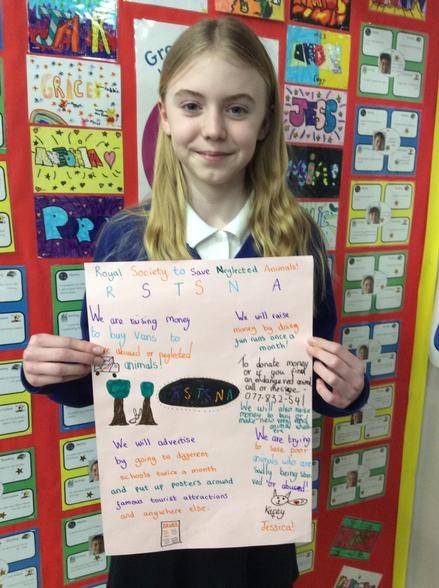 Royal Society to Save Neglected Animals!
R S T S N A
We are raising money
to buy vans to
abused or neglected
animals!
We will raise
money by doing
fun runs once a
month!
To donate money
or if you find
an endangered animal
call or message..
077-832-541
We will also raise
money to buy or
make new
RSTSNA
We will advertise
by going to different
schools twice a month
and put up posters around
famous tourist attractions
and anywhere else.
We are trying
to save poor
animals who are
sadly being
or abused!
Kasey
Jessica!
GRICE
JESS